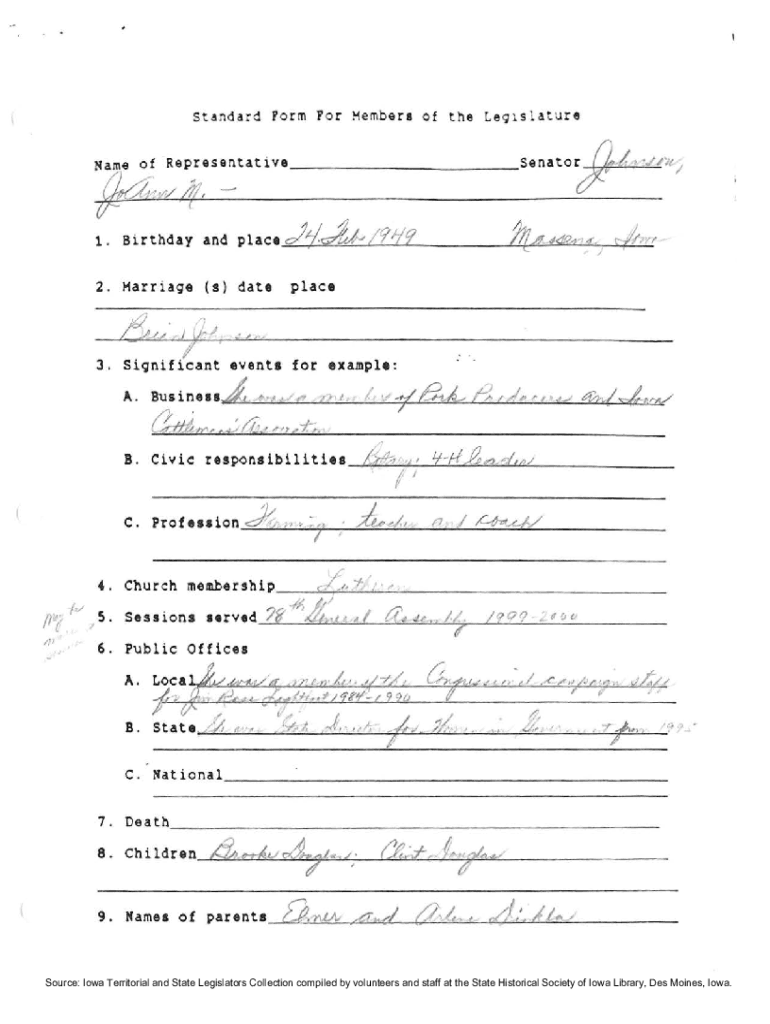 Standard Form For Members of the Legislature
Name of Representative Senator Johnson,
JoAnn M. -
1. Birthday and place 24 Feb 1949 Massena, Iowa
2. Marriage (s) date place
Brian Johnson
3. Significant events for example:
A. Business She was a member of Pork Producers and Iowa
Cattlemen's Association
B. Civic responsibilities Rotary; 4-H leader
C. Profession Farming; teacher and coach
4. Church membership Lutheran
May be
5. Sessions served 78th General Assembly 1999-2000
more
6. Public Offices
A. Local She was a member of the Congressional campaign staff
for Jim Ross Lightfoot 1984-1990
B. State She was State Director for Women in Government from 1995
C. National
7. Death
8. Children Brooke Douglas; Clint Douglas
9. Names of parents Elmer and Arlene Dinkla
Source: Iowa Territorial and State Legislators Collection compiled by volunteers and staff at the State Historical Society of Iowa Library, Des Moines, Iowa.